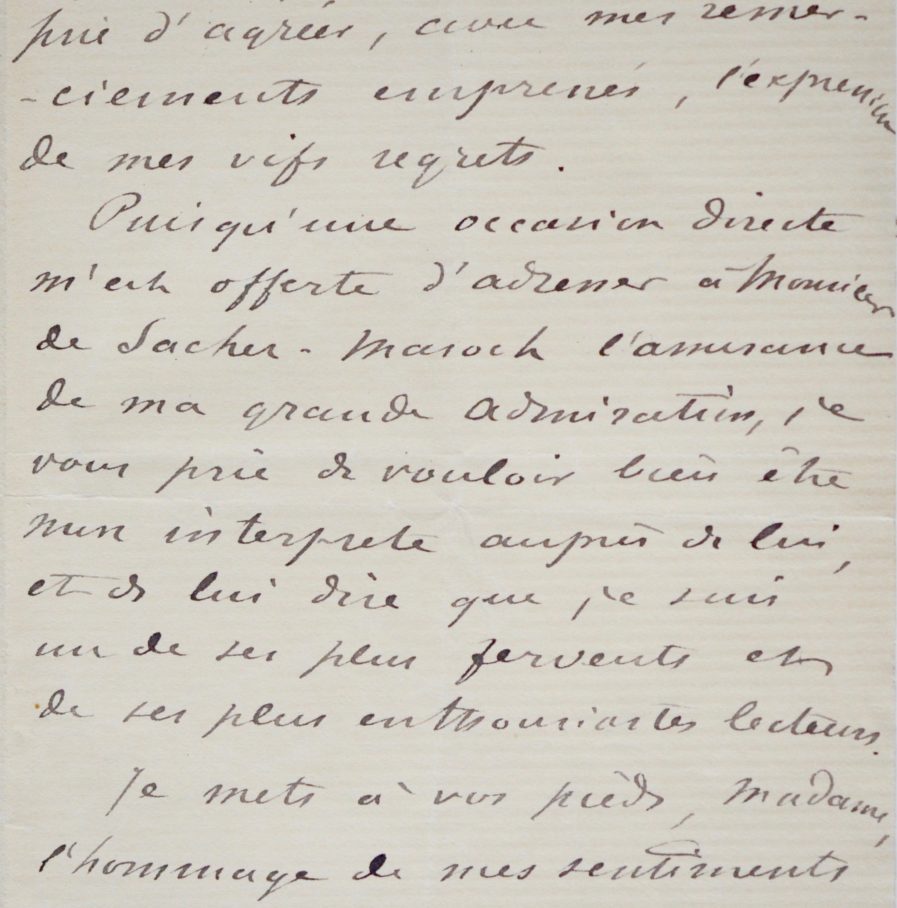 prie d'agréer, avec mes remer-
-ciements empressés, l'expression
de mes vifs regrets.
Puisqu'une occasion directe
m'est offerte d'adresser à Monsieur
de Sacher-Masoch l'assurance
de ma grande admiration, je
vous prie de vouloir bien être
mon interprete auprès de lui,
et de lui dire que je suis
un de ses plus fervents et
de ses plus enthousiastes lecteurs.
Je mets à vos pieds, Madame,
l'hommage de mes sentiments